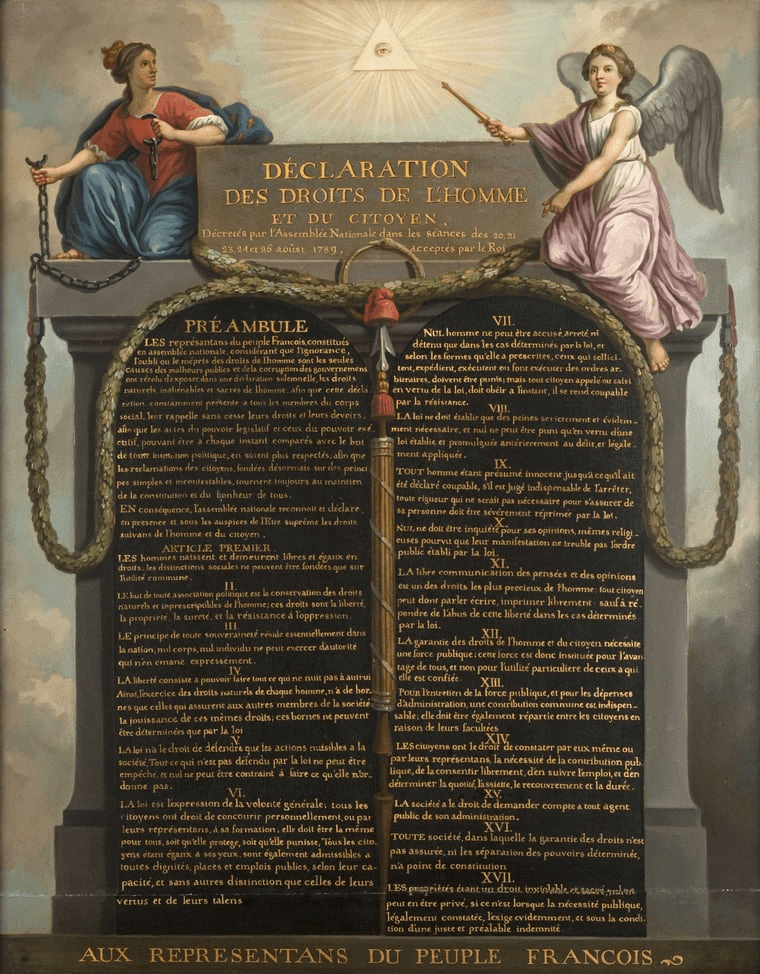 DÉCLARATION
DES DROITS DE L'HOMME
ET DU CITOYEN,
Décretés par l'Assemblée Nationale dans les séances des 20.21
23.24 et 26 aoûst 1789, acceptés par le Roi
PRÉAMBULE
LES représantans du peuple Francois, constitués
en assemblée nationale, considérant que l'ignorance,
l'oubli ou le mépris des droits de l'homme sont les seules
causes des malheurs publics et de la corruption des gouvernemens
ont résolu d'exposer dans une déclaration solemnelle, les droits
naturels, inaliénables et sacrés de l'homme; afin que cette décla
ration, constamment présente a tous les membres du corps
social, leur rappelle sans cesse leurs droits et leurs devoirs;
afin que les actes du pouvoir législatif et ceux du pouvoir exé
cutif, pouvant être a chaque instant comparés avec le but
de toute institution politique, en soient plus respectés; afin que
les reclamations des citoyens, fondées désormais sur des princi
pes simples et incontestables, tournent toujours au maintien
de la constitution et du bonheur de tous.
EN conséquence, l'assemblée nationale reconnoit et déclare,
en presence et sous les auspices de l'Etre suprême les droits
suivans de l'homme et du citoyen.
ARTICLE PREMIER.
LES hommes naissent et demeurent libres et égaux en
droits, les distinctions sociales ne peuvent être fondées que sur
l'utilité commune.
II.
LE but de toute association politique est la conservation des droits
naturels et inprescriptibles de l'homme; ces droits sont la liberté,
la propriété, la sureté, et la résistance à l'oppression.
III.
LE principe de toute souveraineté réside essentiellement dans
la nation, nul corps, nul individu ne peut exercer d'autorité
qui n'en emane expressément.
IV
LA liberté consiste a pouvoir faire tout ce qui ne nuit pas à autrui
Ainsi, l'exercice des droits naturels de chaque homme, n'a de bor.
nes que celles qui assurent aux autres membres de la société
la jouissance de ces mêmes droits; ces bornes ne peuvent
être déterminées que par la loi
V.
LA loi n'a le droit de défendre que les actions nuisibles a la
société. Tout ce qui n'est pas défendu par la loi ne peut être
empêché, et nul ne peut être contraint à faire ce qu'elle n'or.
donne pas.
VI.
LA loi est l'expression de la volonté générale; tous les
citoyens ont droit de concourir personnellement, ou par
leurs représentans, à sa formation; elle doit être la même
pour tous, soit qu'elle protege, soit qu'elle punisse, Tous les cito.
yens étant égaux à ses yeux, sont également admissibles a
toutes dignités, places et emplois publics, selon leur ca-
pacité, et sans autres distinction que celles de leurs
vertus et de leurs talens
VII.
NUL homme ne peut être accusé, arreté, ni
détenu que dans les cas déterminés par la loi, et
selon les formes qu'elle a prescrites, ceux qui sollici-
tent, expédient, exécutent ou font exécuter des ordres ar-
bitraires, doivent être punis; mais tout citoyen appelé ou saisi
en vertu de la loi, doit obéir a l'instant, il se rend coupable
par la résistance.
VIII.
LA loi ne doit établir que des peines strictement et évidem-
ment nécessaire, et nul ne peut être puni qu'en vertu d'une
loi établie et promulguée antérierement au délit, et légale-
ment appliquée.
IX.
TOUT homme étant présumé innocent jusqu'à ce qu'il ait
été déclaré coupable, s'il est jugé indispensable de l'arrêter,
toute rigueur qui ne serait pas nécessaire pour s'assurer de
sa personne doit être sévèrement réprimée par la loi.
X.
NUL ne doit être inquiété pour ses opinions, mêmes religi-
euses pourvu que leur manifestation ne trouble pas l'ordre
public établi par la loi.
XI.
LA libre communication des pensées et des opinions
est un des droits les plus precieux de l'homme; tout citoyen
peut dont parler écrire, imprimer librement sauf à ré-
pondre de l'abus de cette liberté dans les cas déterminés
par la loi.
XII.
LA garantie des droits de l'homme et du citoyen nécessite
une force publique; cette force est donc instituée pour l'avan
tage de tous, et non pour l'utilité particuliere de ceux a qui
elle est confiée.
XIII.
POUR l'entretien de la force publique, et pour les dépenses
d'administration, une contribution commune est indispen-
sable; elle doit être également répartie entre les citoyens en
raison de leurs facultées
XIV.
LES citoyens ont le droit de constater par eux même ou
par leurs représentans, la nécessité de la contribution pub.
lique, de la consentir librement, d'en suivre l'emploi, et d'en
déterminer la quotité, l'assiette, le recouvrement et la durée.
XV.
LA société a le droit de demander compte a tout agent
public de son administration.
XVI.
TOUTE société, dans laquelle la garantie des droits n'est
pas assurée, ni les séparation des pouvoirs déterminée,
n'a point de constitution
XVII.
LES propriétés étant un droit inviolable et sacré, nul ne
peut en être privé, si ce n'est lorsque la nécessité publique,
légalement constatée, l'exige evidemment, et sous la condi-
tion d'une juste et préalable indemnité.
AUX REPRESENTANS DU PEUPLE FRANCOIS